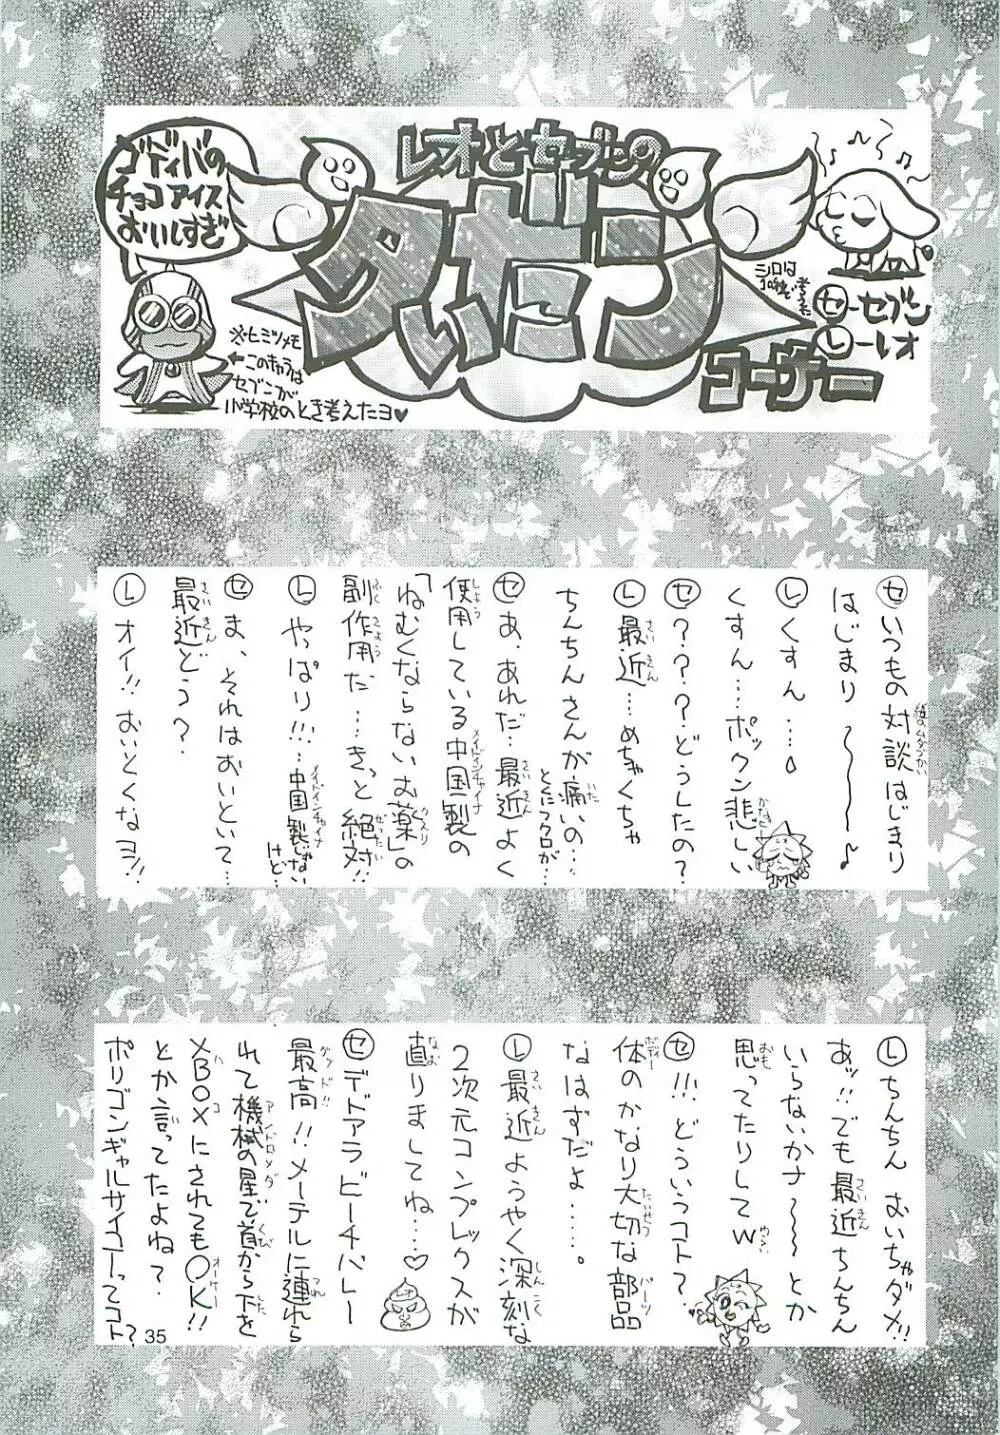 ゴディバの
チョコアイス
おいしすぎ
レオとセブンの
ダベリン
コーナー
※ヒミツメモ
←このキャラは
セブンが
小学校のとき考えたヨ♥
シロは
セ―セブン
レ―レオ
セ いつもの対談はじまり
はじまり〜〜〜♪
レ くすん…
くすん…ポックン悲しい
セ ????どうしたの?
レ 最近…めちゃくちゃ
ちんちんさんが痛いの…
とくにフクロが…
セ あ、あれだ…最近よく
使用している中国製の
「ねむくならないお薬」の
副作用だ…きっと絶対!!
レ やっぱり!!…中国製じゃない
けど…
セ ま、それはおいといて…
最近どう?
レ オイ!!おいとくなヨ!!
レ ちんちんおいちゃダメ!!
あッ!!でも最近ちんちん
いらないかナ〜〜とか
思ってたりしてW
セ !!!どういうコト?
体のかなり大切な部品
なはずだよ……。
レ 最近ようやく深刻な
2次元コンプレックスが
直りましてね…♡
セ デドアラビーチバレー
最高!!メーテルに連れら
れて機械の星で首から下を
XBOXにされても〇K!!
とか言ってたよね?
ポリゴンギャルサイコーってコト?
35